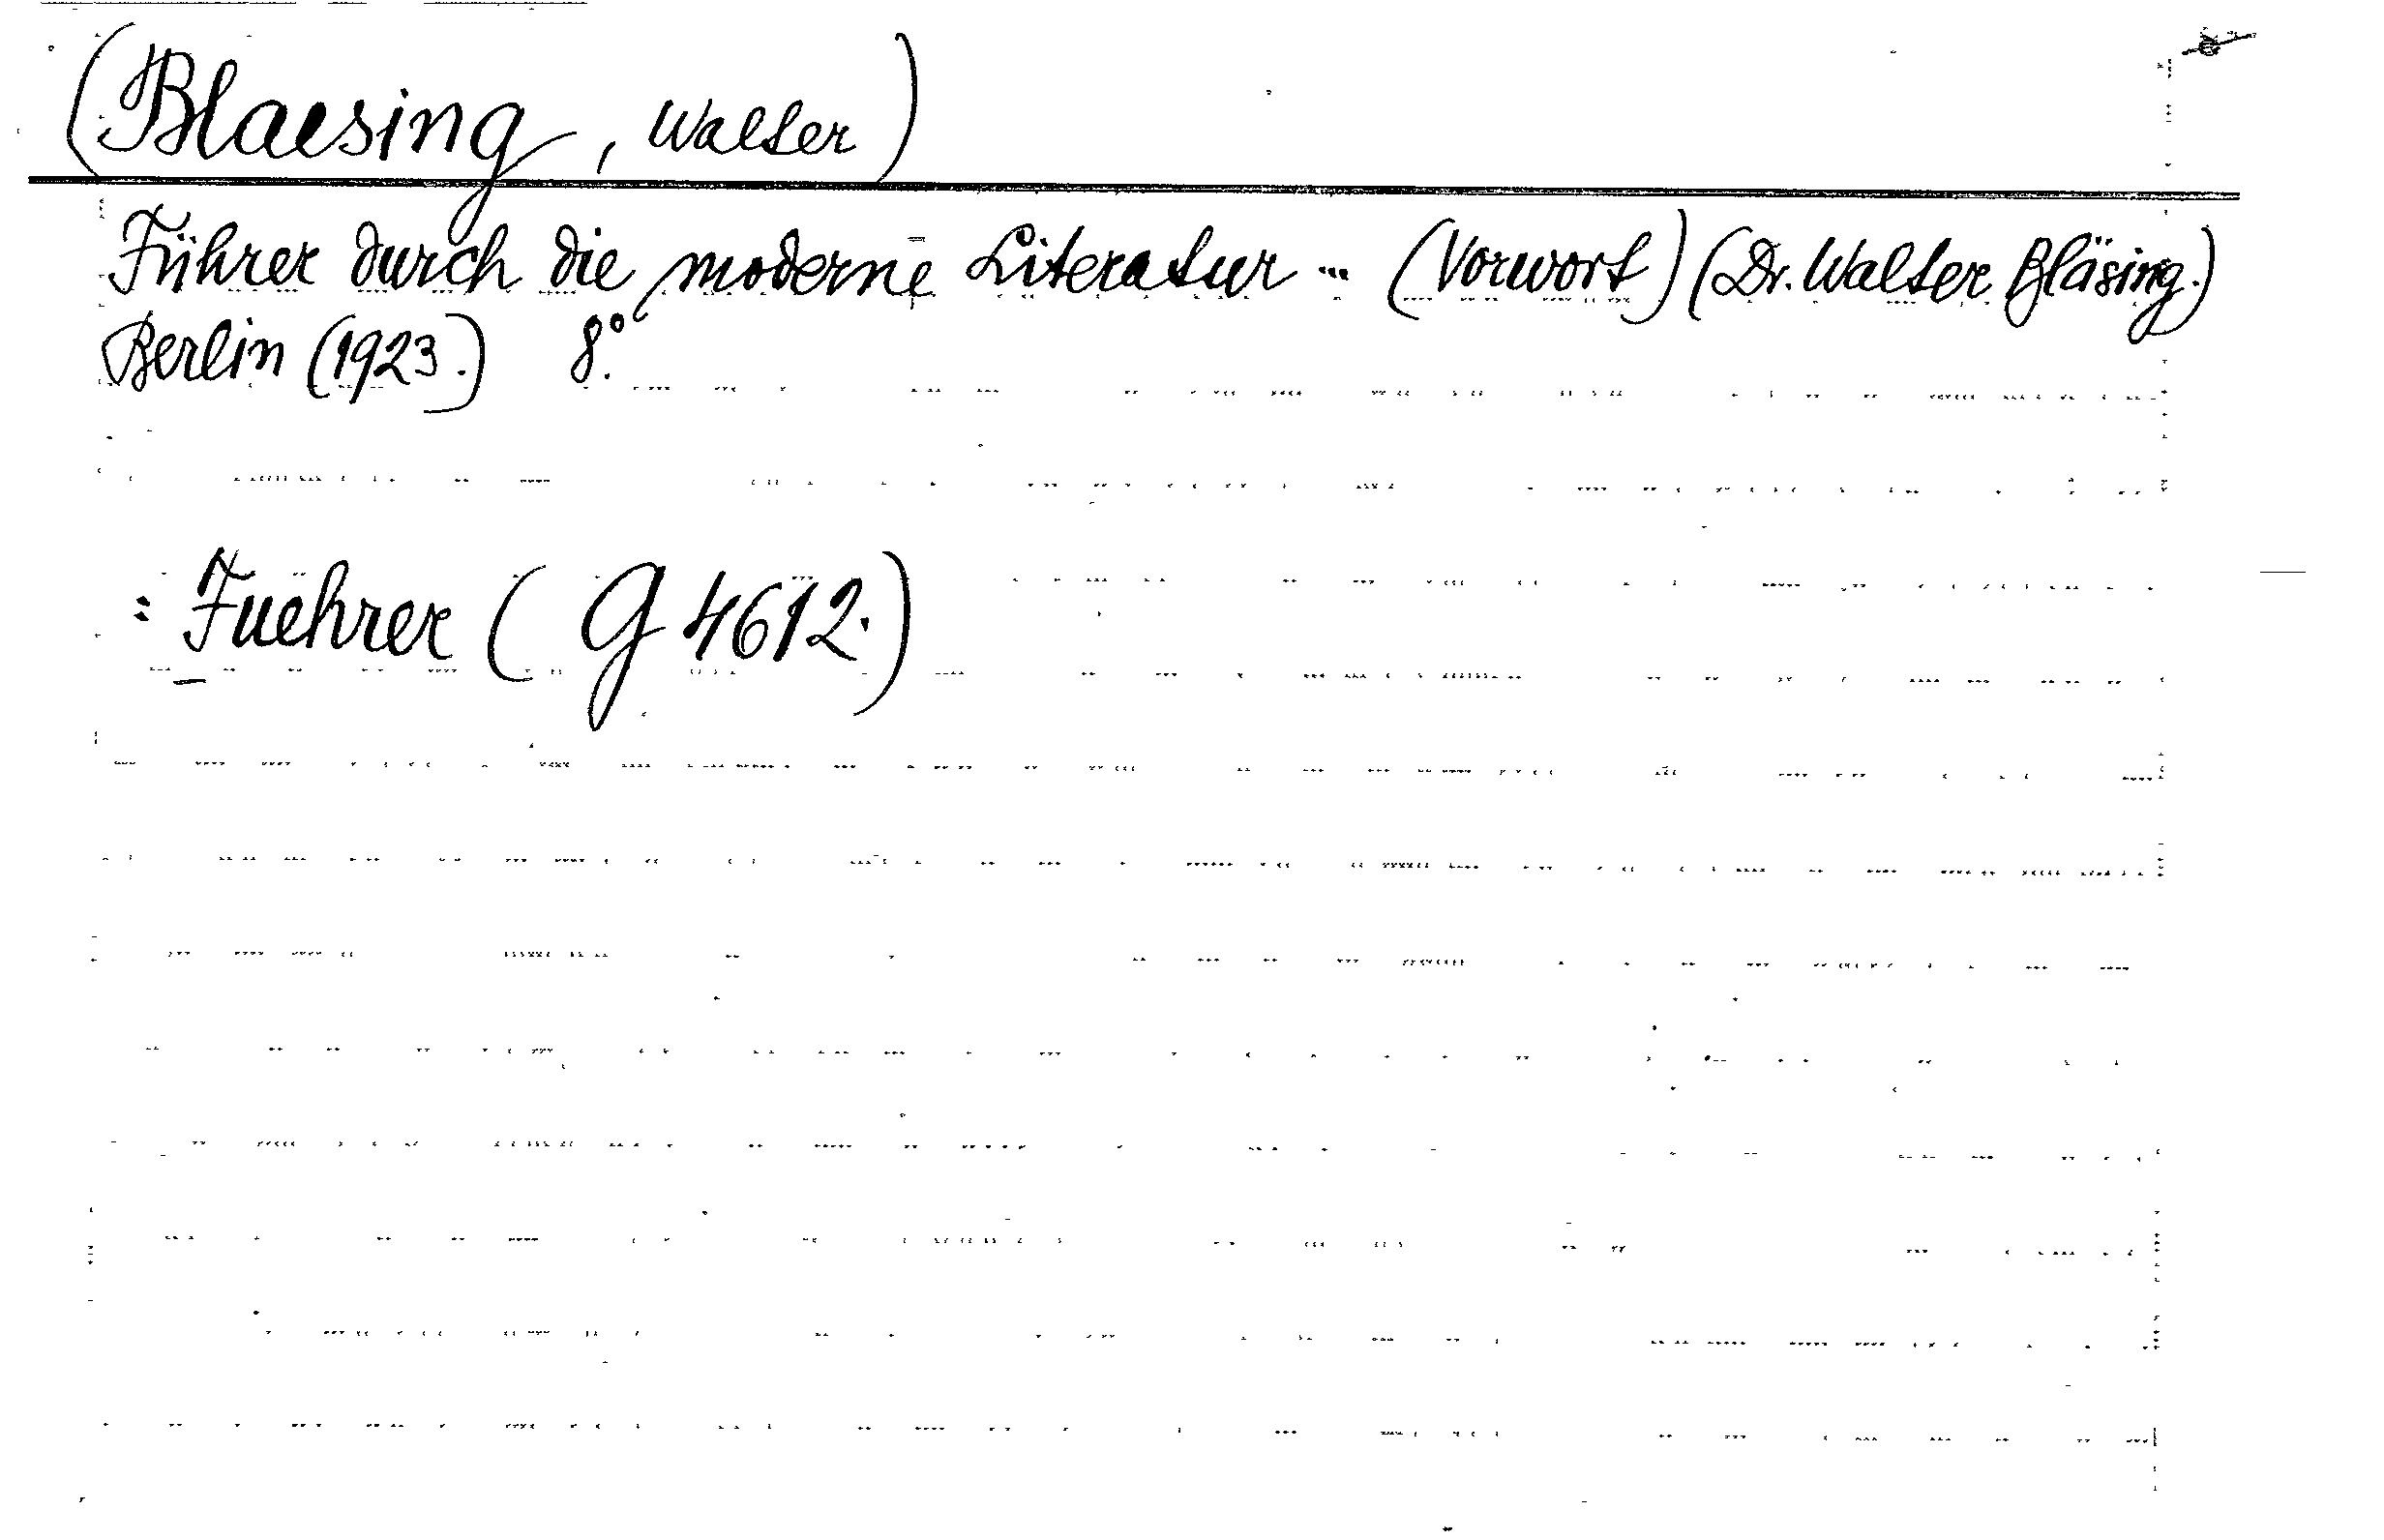 (Blaesing, Walter)
Führer durch die moderne Literatur ... (Vorwort) (Dr. Walter Bläsing.)
Berlin (1923.) 8°.
= Fuehrer (G 4612.)